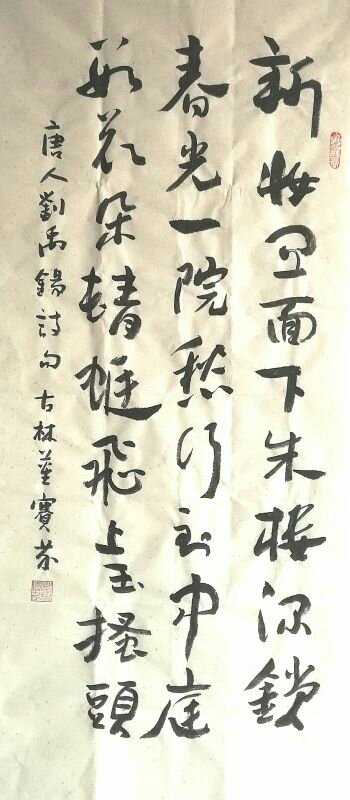 新妝宜面下朱樓深鎖
春光一院愁行到中庭
數花朵蜻蜓飛上玉搔頭
唐人劉禹錫詩句 古林董寶芬